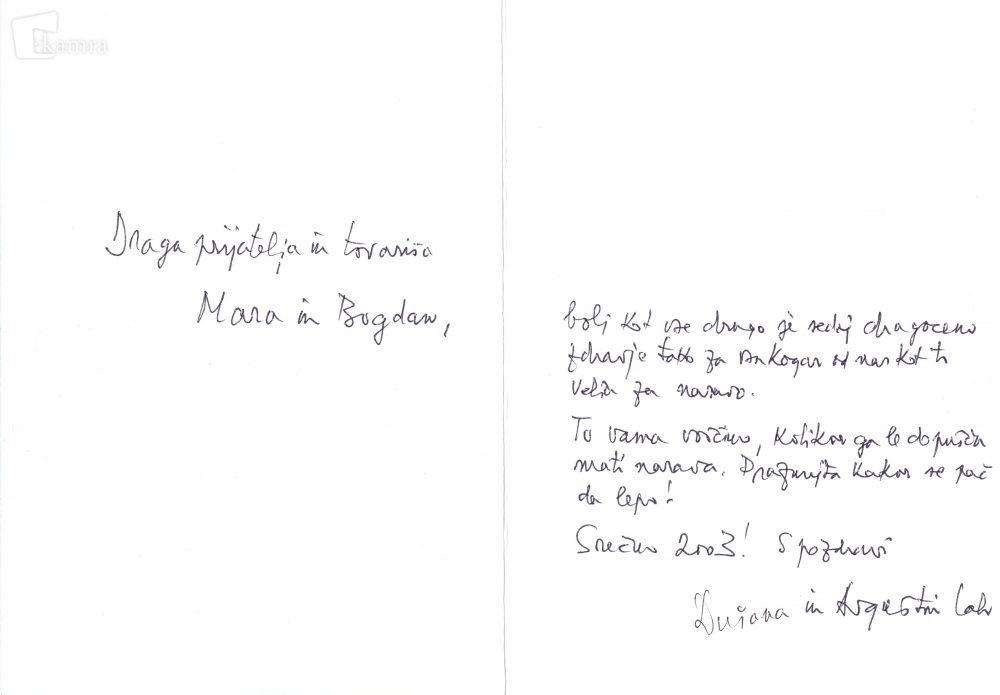 kamra
Draga prijatelja in tovariša
Mara in Bogdan,
bolj kot vse drugo je sedaj dragoceno
zdravje tako za vsakogar od nas kot to
velja za naravo.
To vama voščimo, kolikor ga le dopušča
mati narava. Praznujta kakor se pač
da lepo!
Srečno 2003! S pozdravi
Dušana in Avguštin Lah